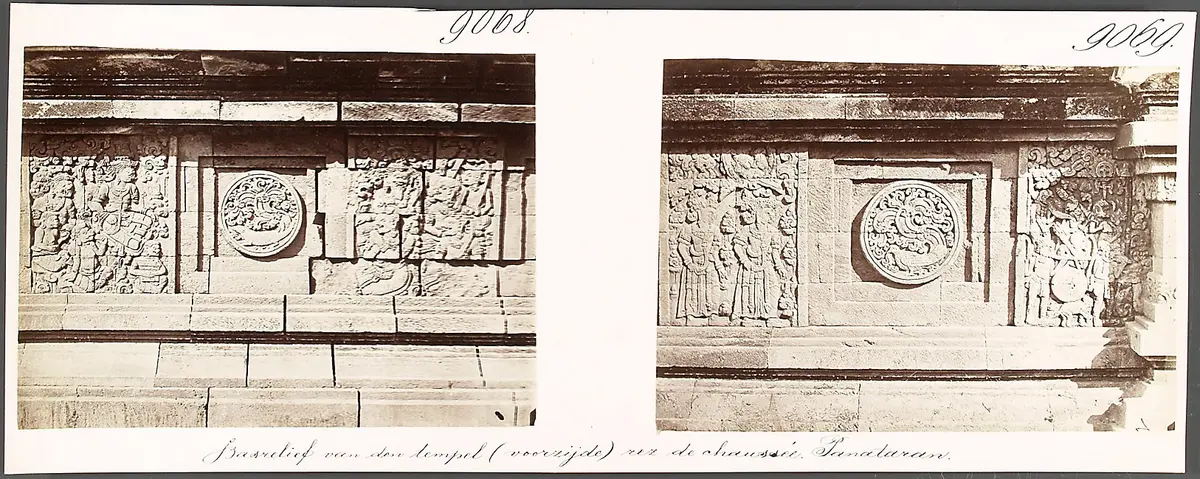 9068.
9069.
Basrelief van den tempel (voorzijde) rez de chaussée. Panataran.